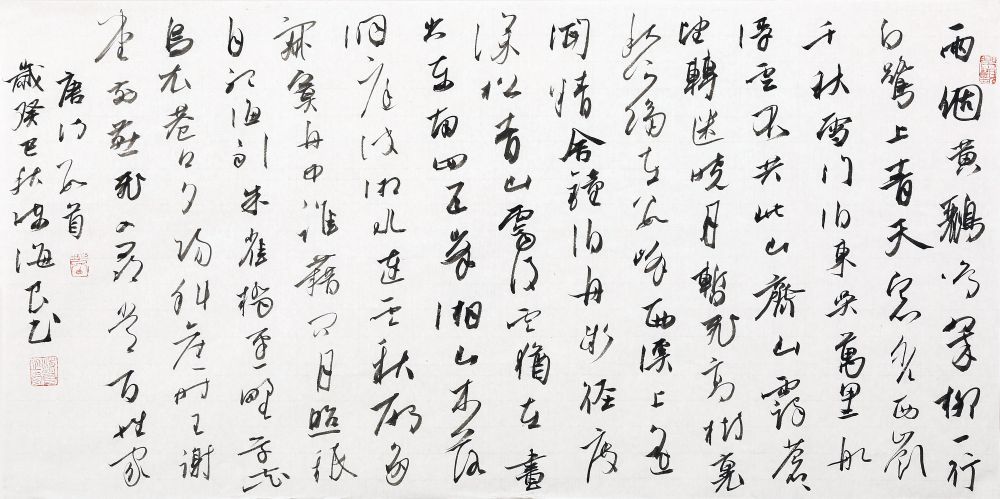 兩個黃鸝鳴翠柳一行
白鷺上青天窗含西嶺
千秋雪門泊東吳萬里船
浮雲不共此山齊山靄蒼
望轉迷曉月暫飛高樹裏
秋河隔在數峰西溪上遙
聞精舍鐘泊舟微徑度
深松青山霽後雲猶在畫
出東南四五峰湘山木落
洞庭波湘水連雲秋雁多
寂寞舟中誰藉問月照祇
自聽漁歌朱雀橋邊野草花
烏衣巷口夕陽斜舊時王謝
堂前燕飛入尋常百姓家
唐詩數首
歲癸巳秋海